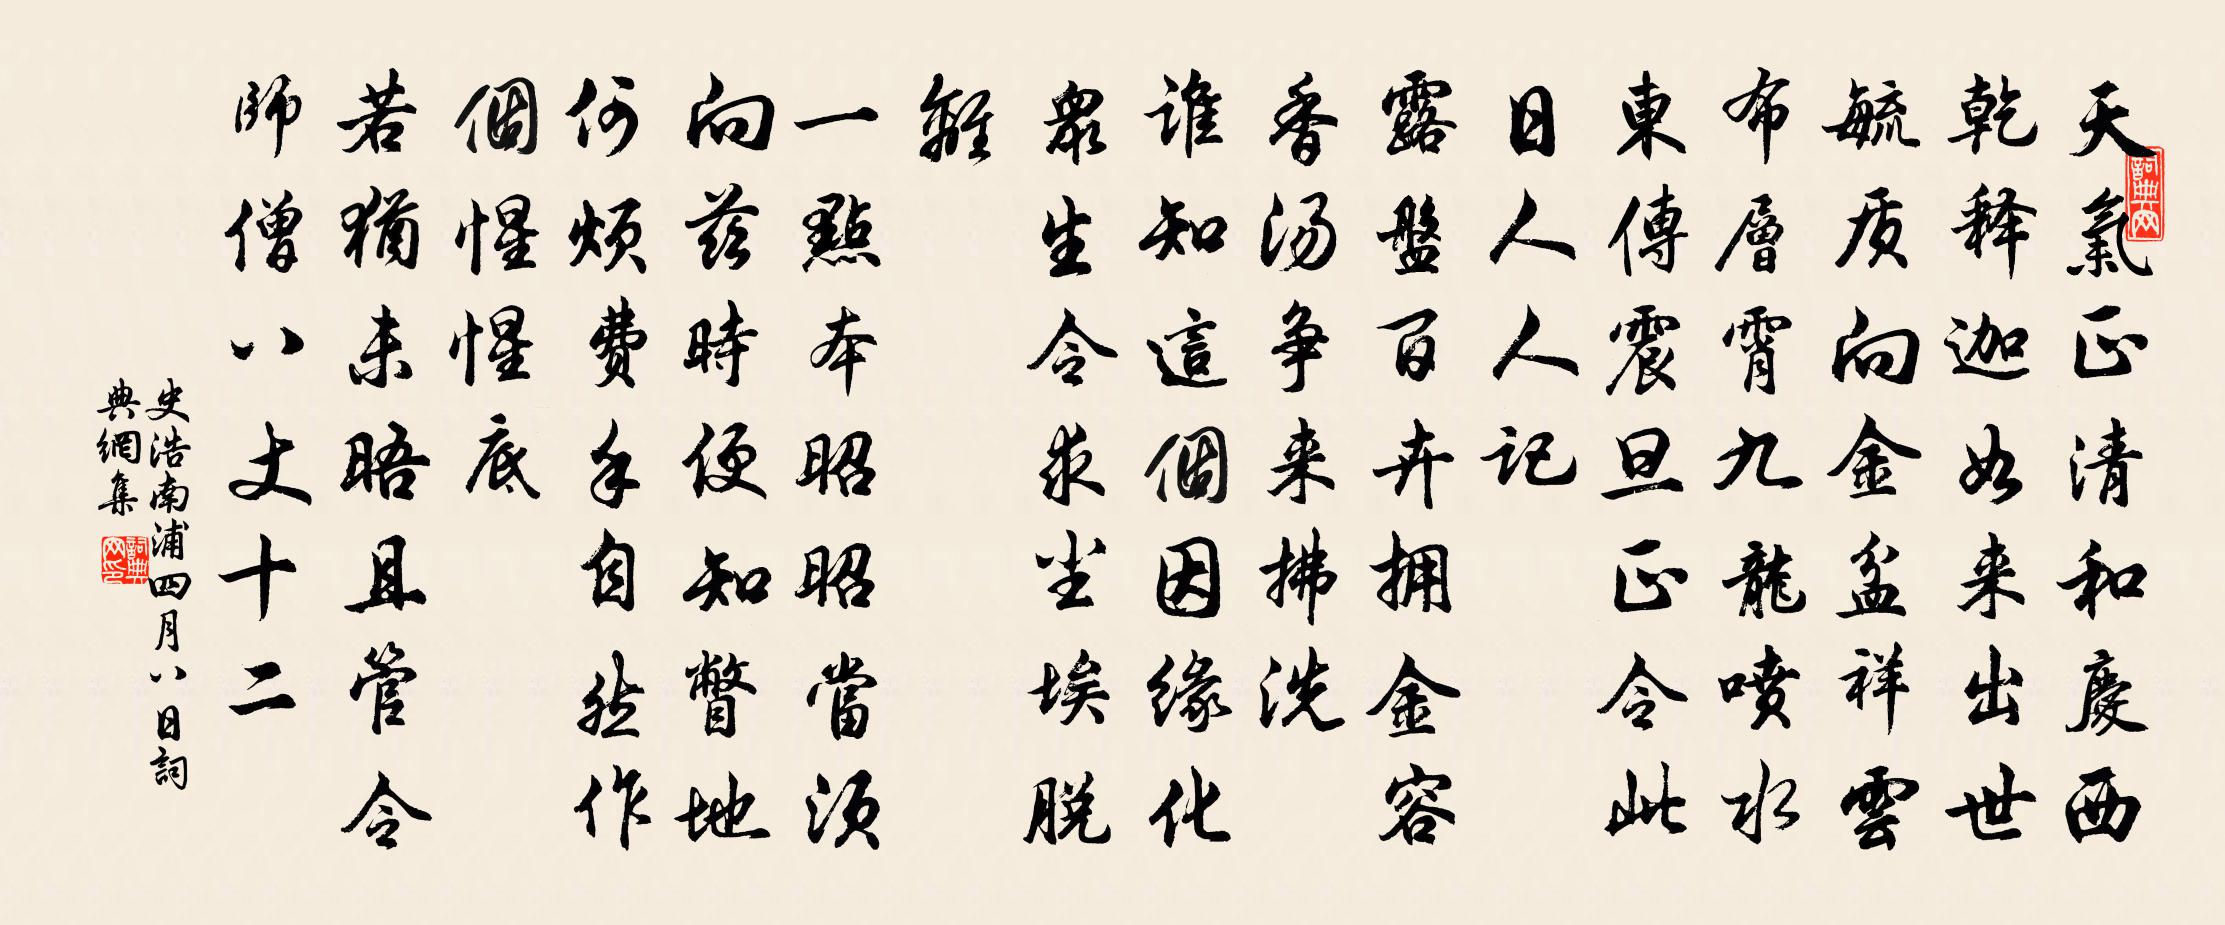 天氣正清和慶西
乾释迦如来出世
毓质向金盆祥雲
布層霄九龍噴水
東傳震旦正令此
日人人记
露盤百卉拥金容
香汤争来拂洗
谁知這個因缘化
眾生令求尘埃脱
離
一點本昭昭當须
向兹時便知瞥地
何烦费手自然作
個惺惺底
若猶未晤且管令
師僧八丈十二
史浩南浦四月八日詞
典網集
詞典网
詞典网印